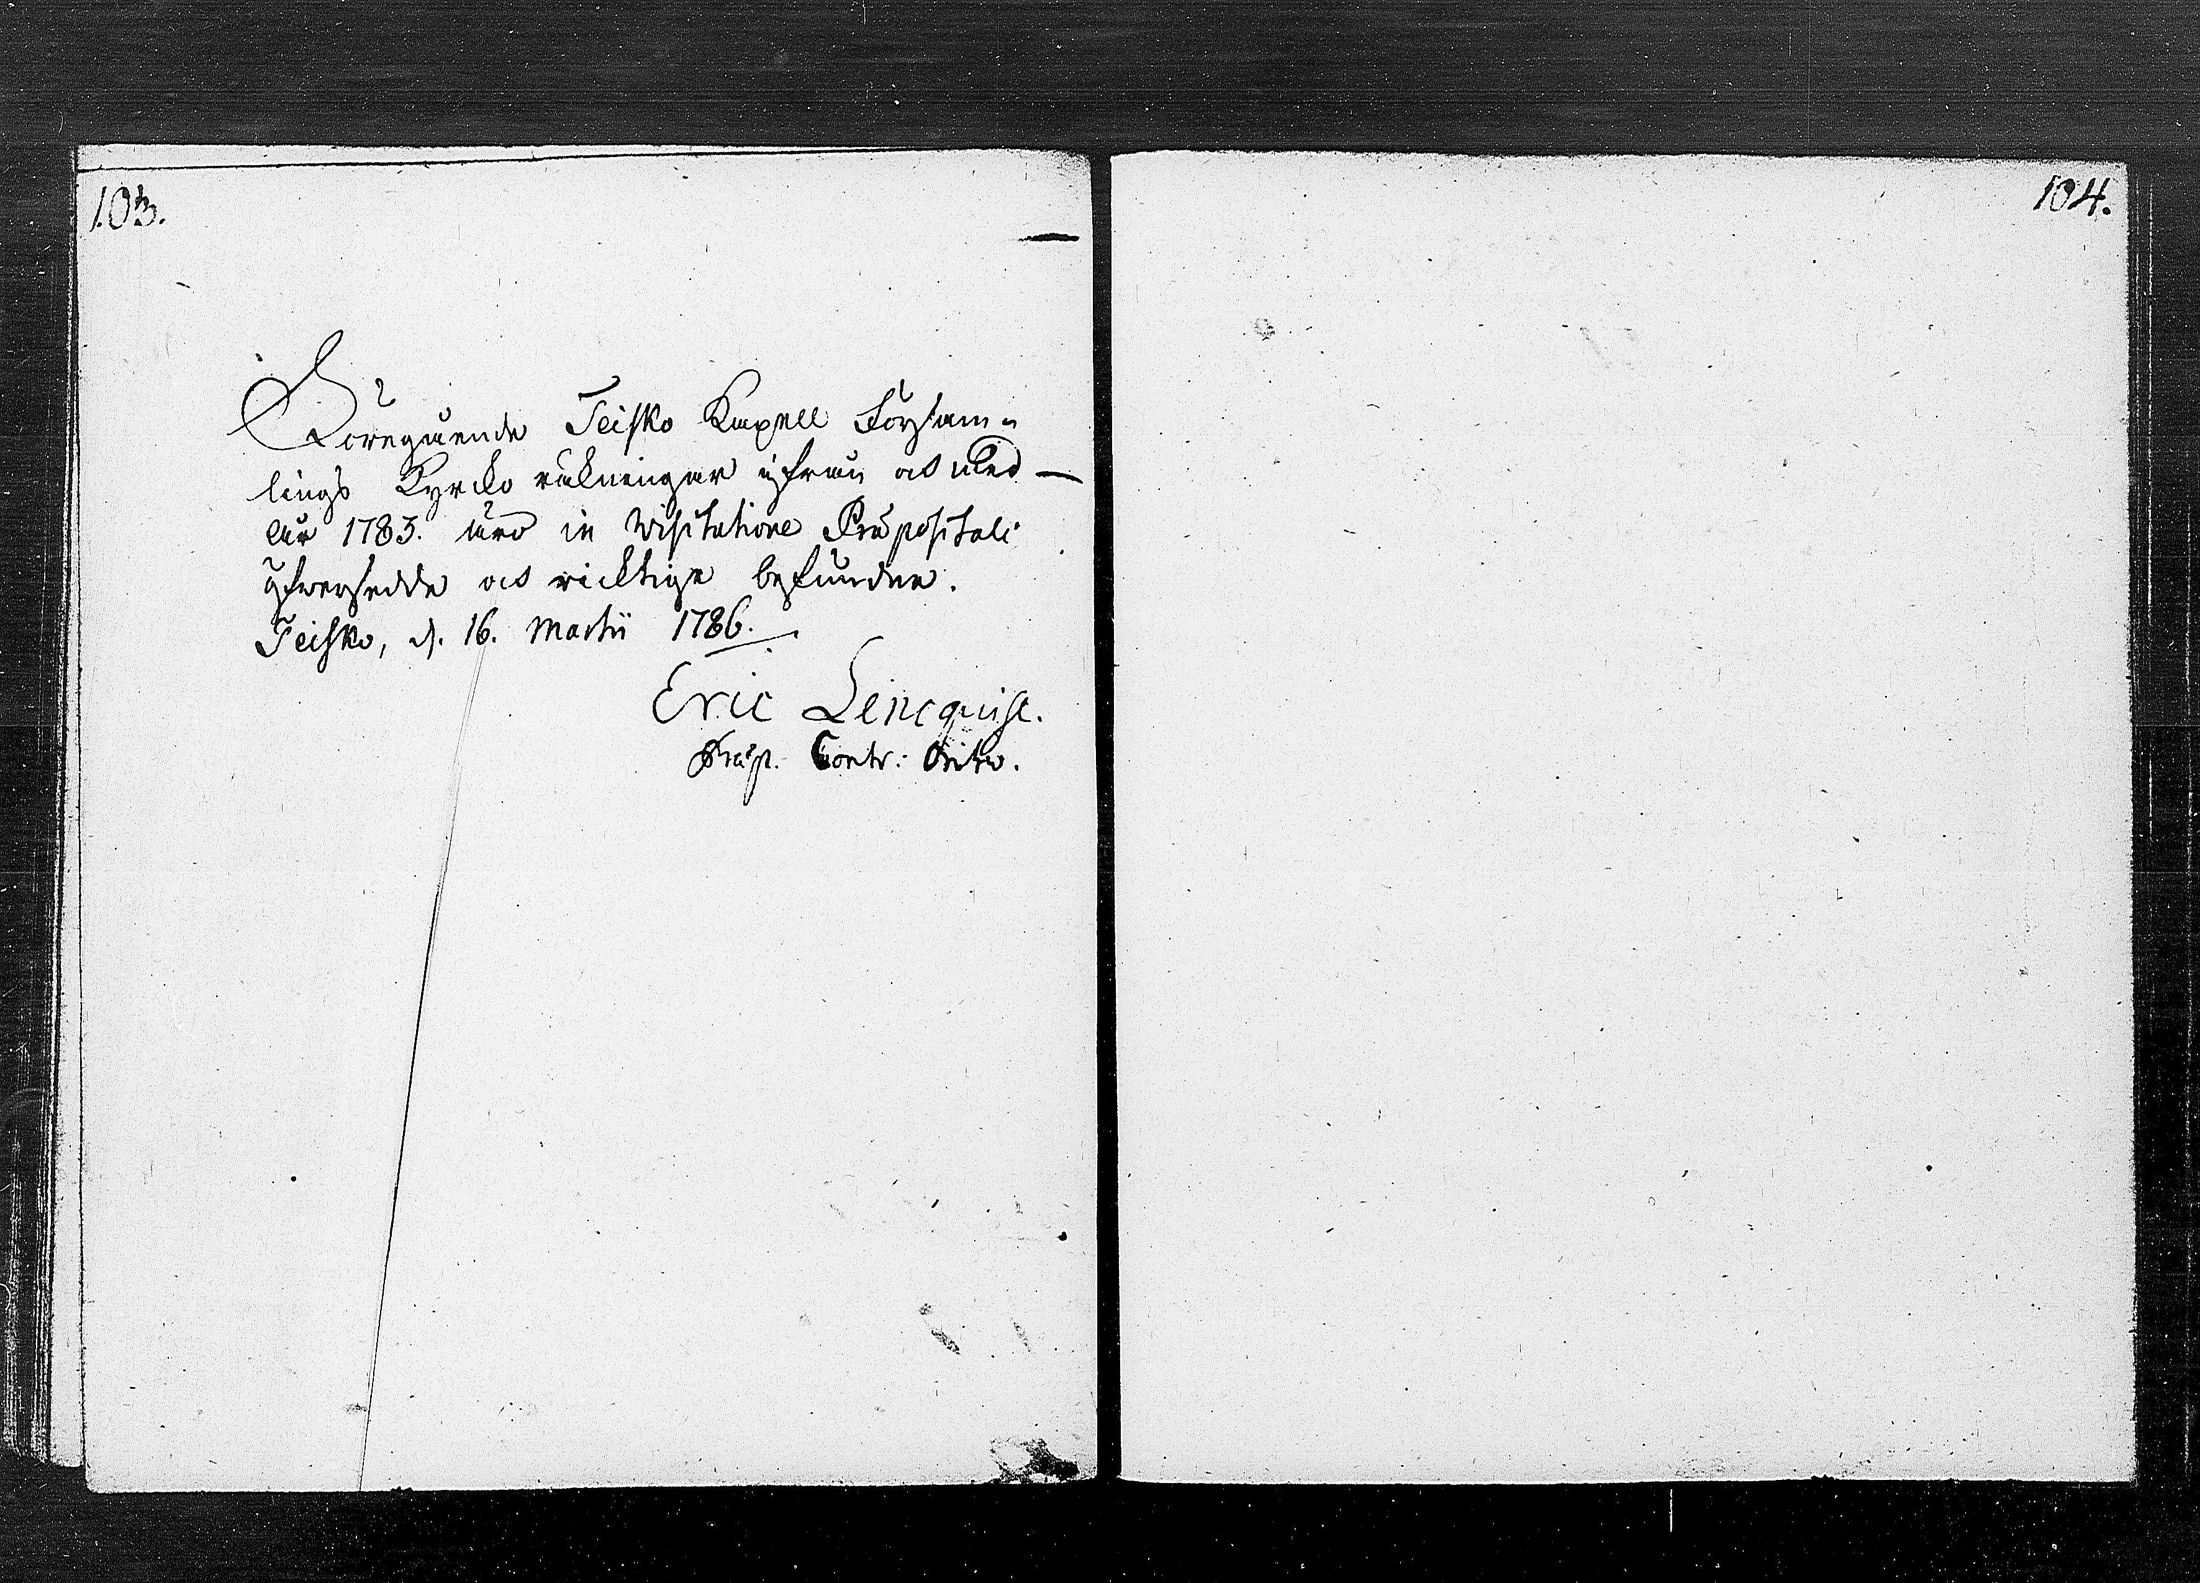 103.
104.
Föregående Teisko Kapell Församm
lings Kyrcko räkningar ifrån och med
år 1783. äro in Visitatione Præpositali
öfversedde och richtige befundne.
Teisko, d. 16. Martii 1786.
Eric Lencquist.
Præp. Contr: